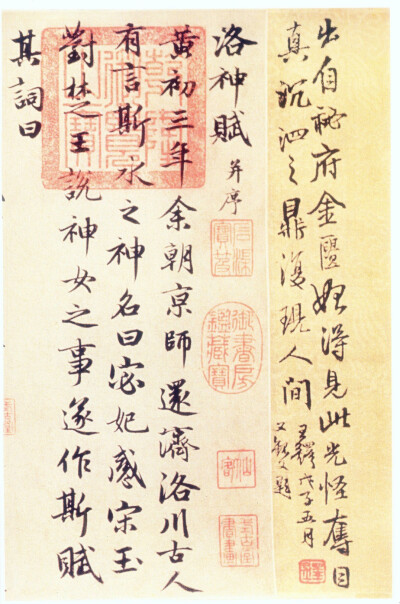 出自祕府金匱始得見此光怪奪目
真沉泗之鼎復現人間
王鐸戊子五月
洛神賦 并序
黃初三年余朝京師還濟洛川古人
有言斯水之神名曰宓妃感宋玉
對楚王說神女之事遂作斯賦
其詞曰
御書房鑑藏寶